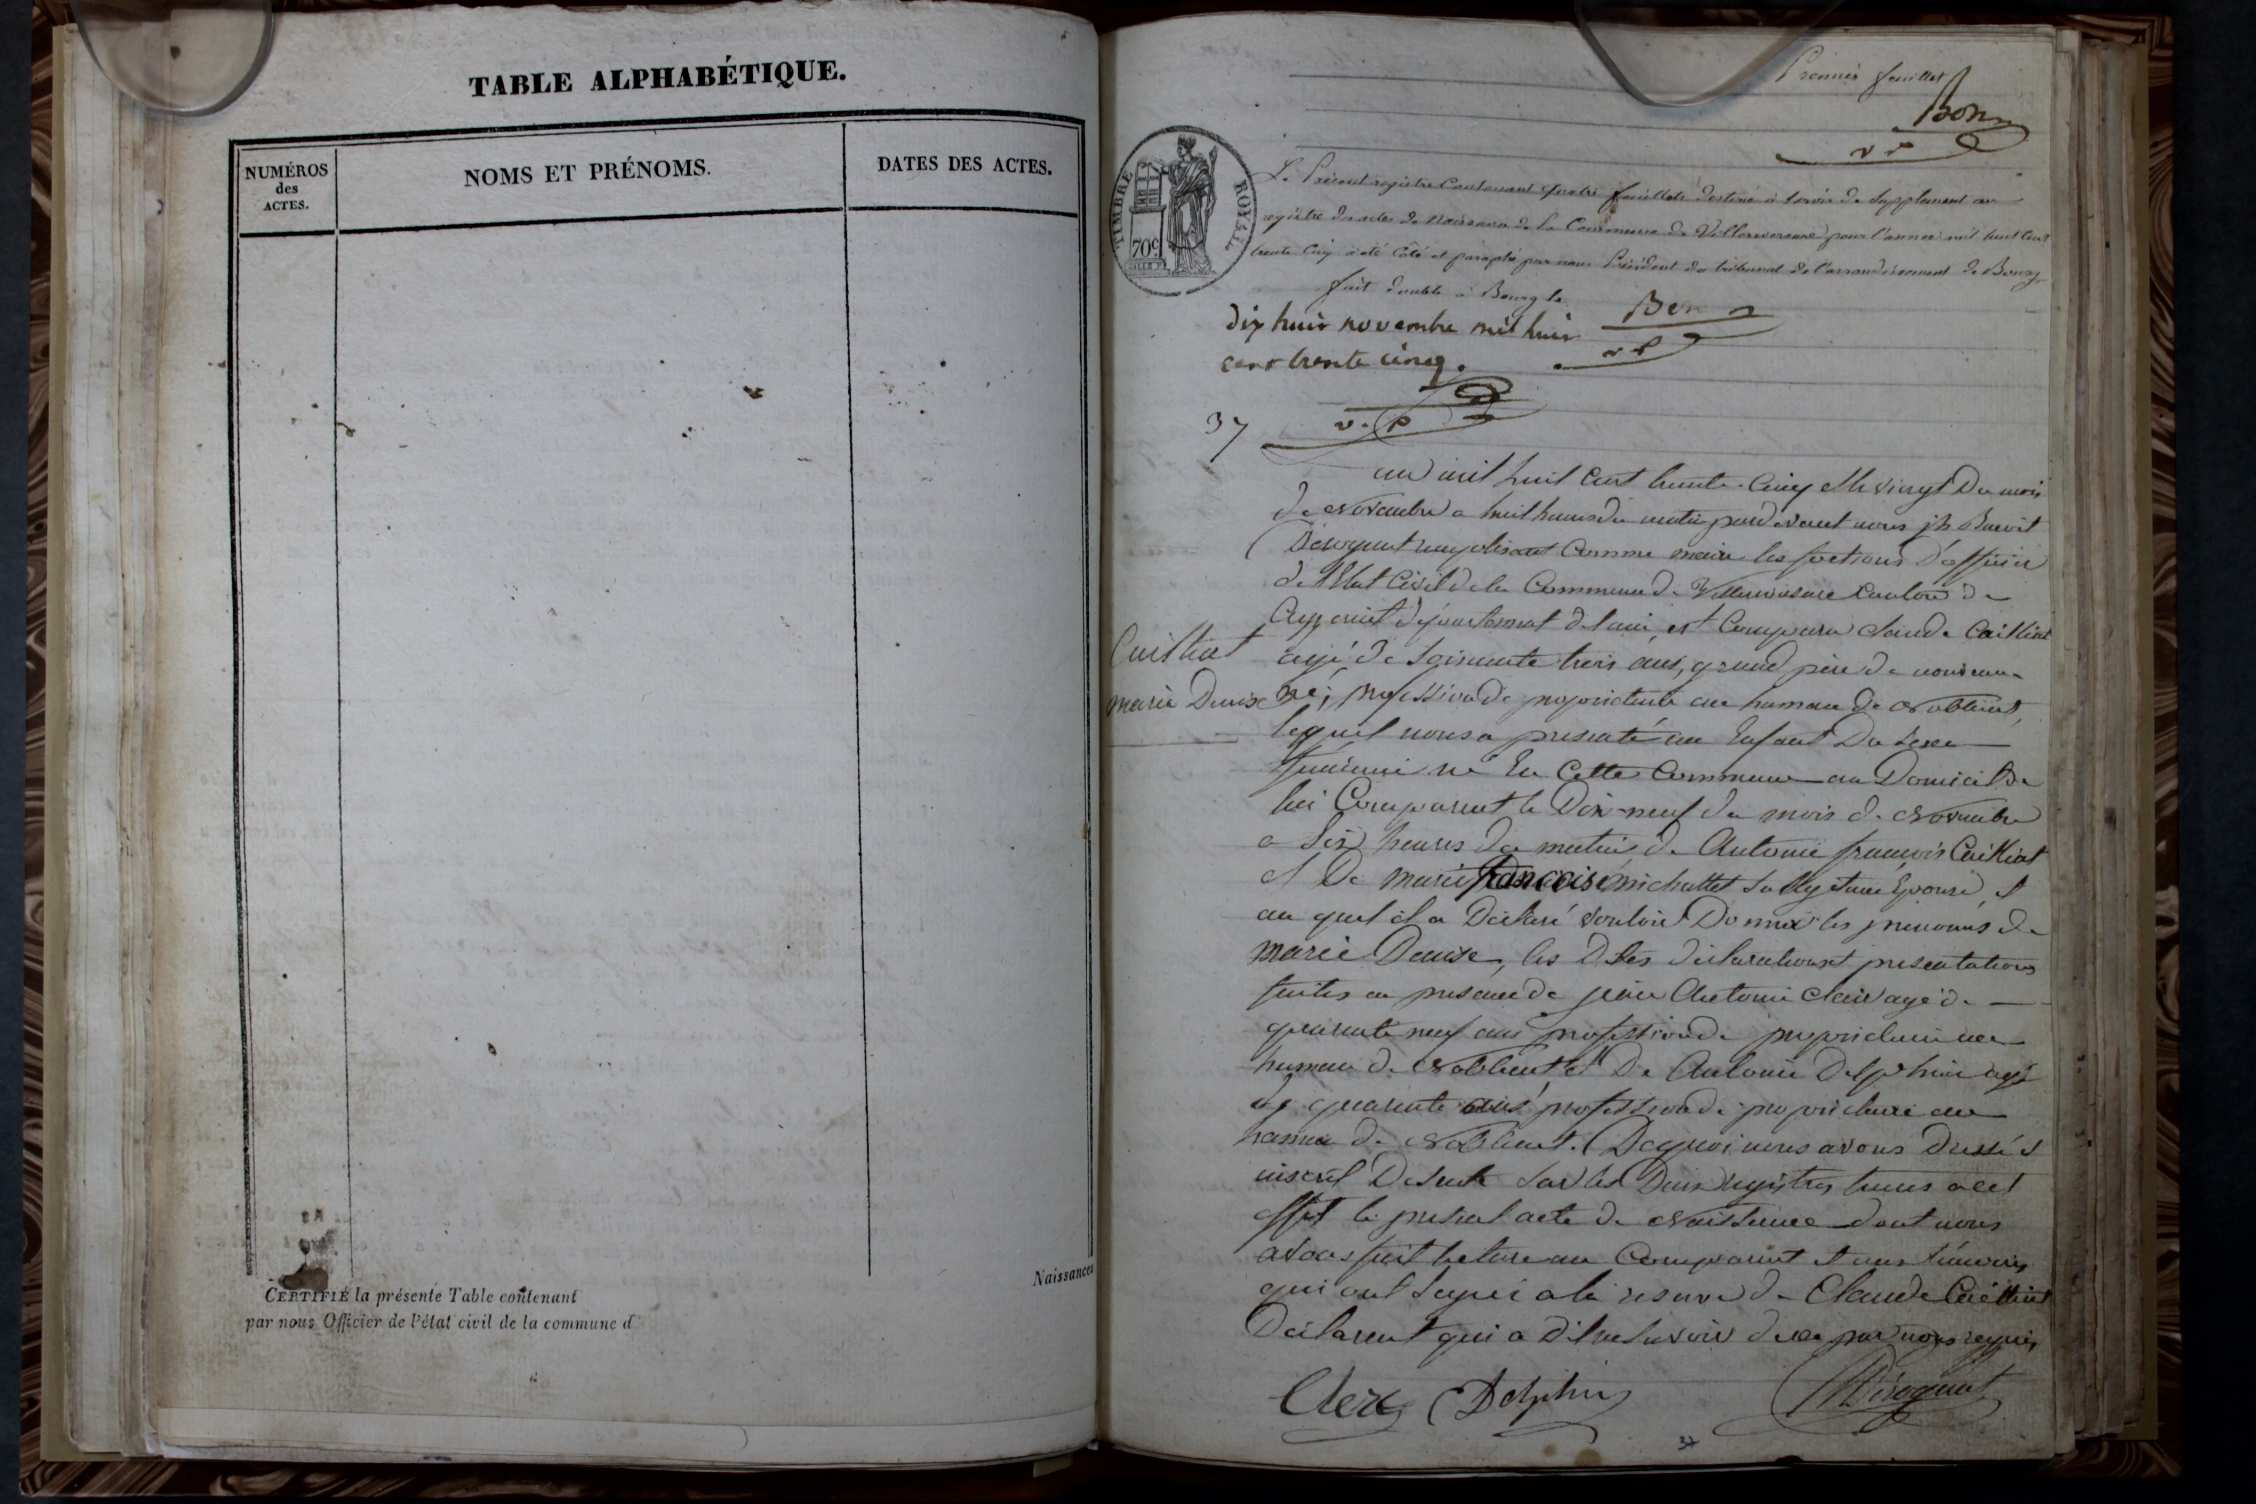 TABLE ALPHABÉTIQUE.
NUMÉROS
des
ACTES.
NOMS ET PRÉNOMS.
DATES DES ACTES.
Naissances
CERTIFIÉ la présente Table contenant
par nous Officier de l'état civil de la commune d
Premier feuillet
Bon
v P
TIMBRE ROYAL
70c
Le Présent registre Contenant quatre feuillets destiné à servir de Supplement au
registre des actes de Naissance de la Commune de Villereversure pour l'année mil huit Cent
trente Cinq a été Coté et paraphé par nous Président du tribunal de l'arrondissement de Bourg
fait double à Bourg le
dix huit novembre mil huit
cent trente cinq.
Bon
v P
v. P
37
au mil huit Cent trente Cinq et le vingt Du mois
de Novembre a huit heures du matin par devant nous jh Benoit
Déroquat remplissant Comme maire les foctions D'officier
de l'Etat Civil de la Commune de Villereversure Canton de
Ceyzeriat département de l'ain, est Comparu Claude Cailliat
Cailliat
agé de Soixante trois ans, grand père de nouveau
marie Denise
né, profession de propriétaire au hameau de Noblens,
lequel nous a presenté un Enfant Du Sexe
féminin né En Cette Commune au Domicil De
lui Comparent le Dix-neuf du mois de Novembre
a Six heures du matin de Antoine françois Cailliat
et De marie françoise michallet Sa légitime Epouse, et
au quel il a Déclaré vouloir Donner les prenoms de
marie Denise, les Dites déclaration et presentations
faites en presence de Antoine Clerc agé de
quarante neuf ans profession de propriétaire au
hameau de et De Antoine Delphin agé
de quarante ans profession de propriétaire au
hameau de . De quoi nous avons Dressé et
inscrit De suite Sur les Deux registres tenus a cet
effet le present acte de Naissance dont nous
avons fait lecture au Comparant et aux témoins
qui ont Signé a la reserve de Claude Cailliat
Déclarent qui a Dit ne savoir de ce par nous requis
Clerc Delphin Déroquat
37